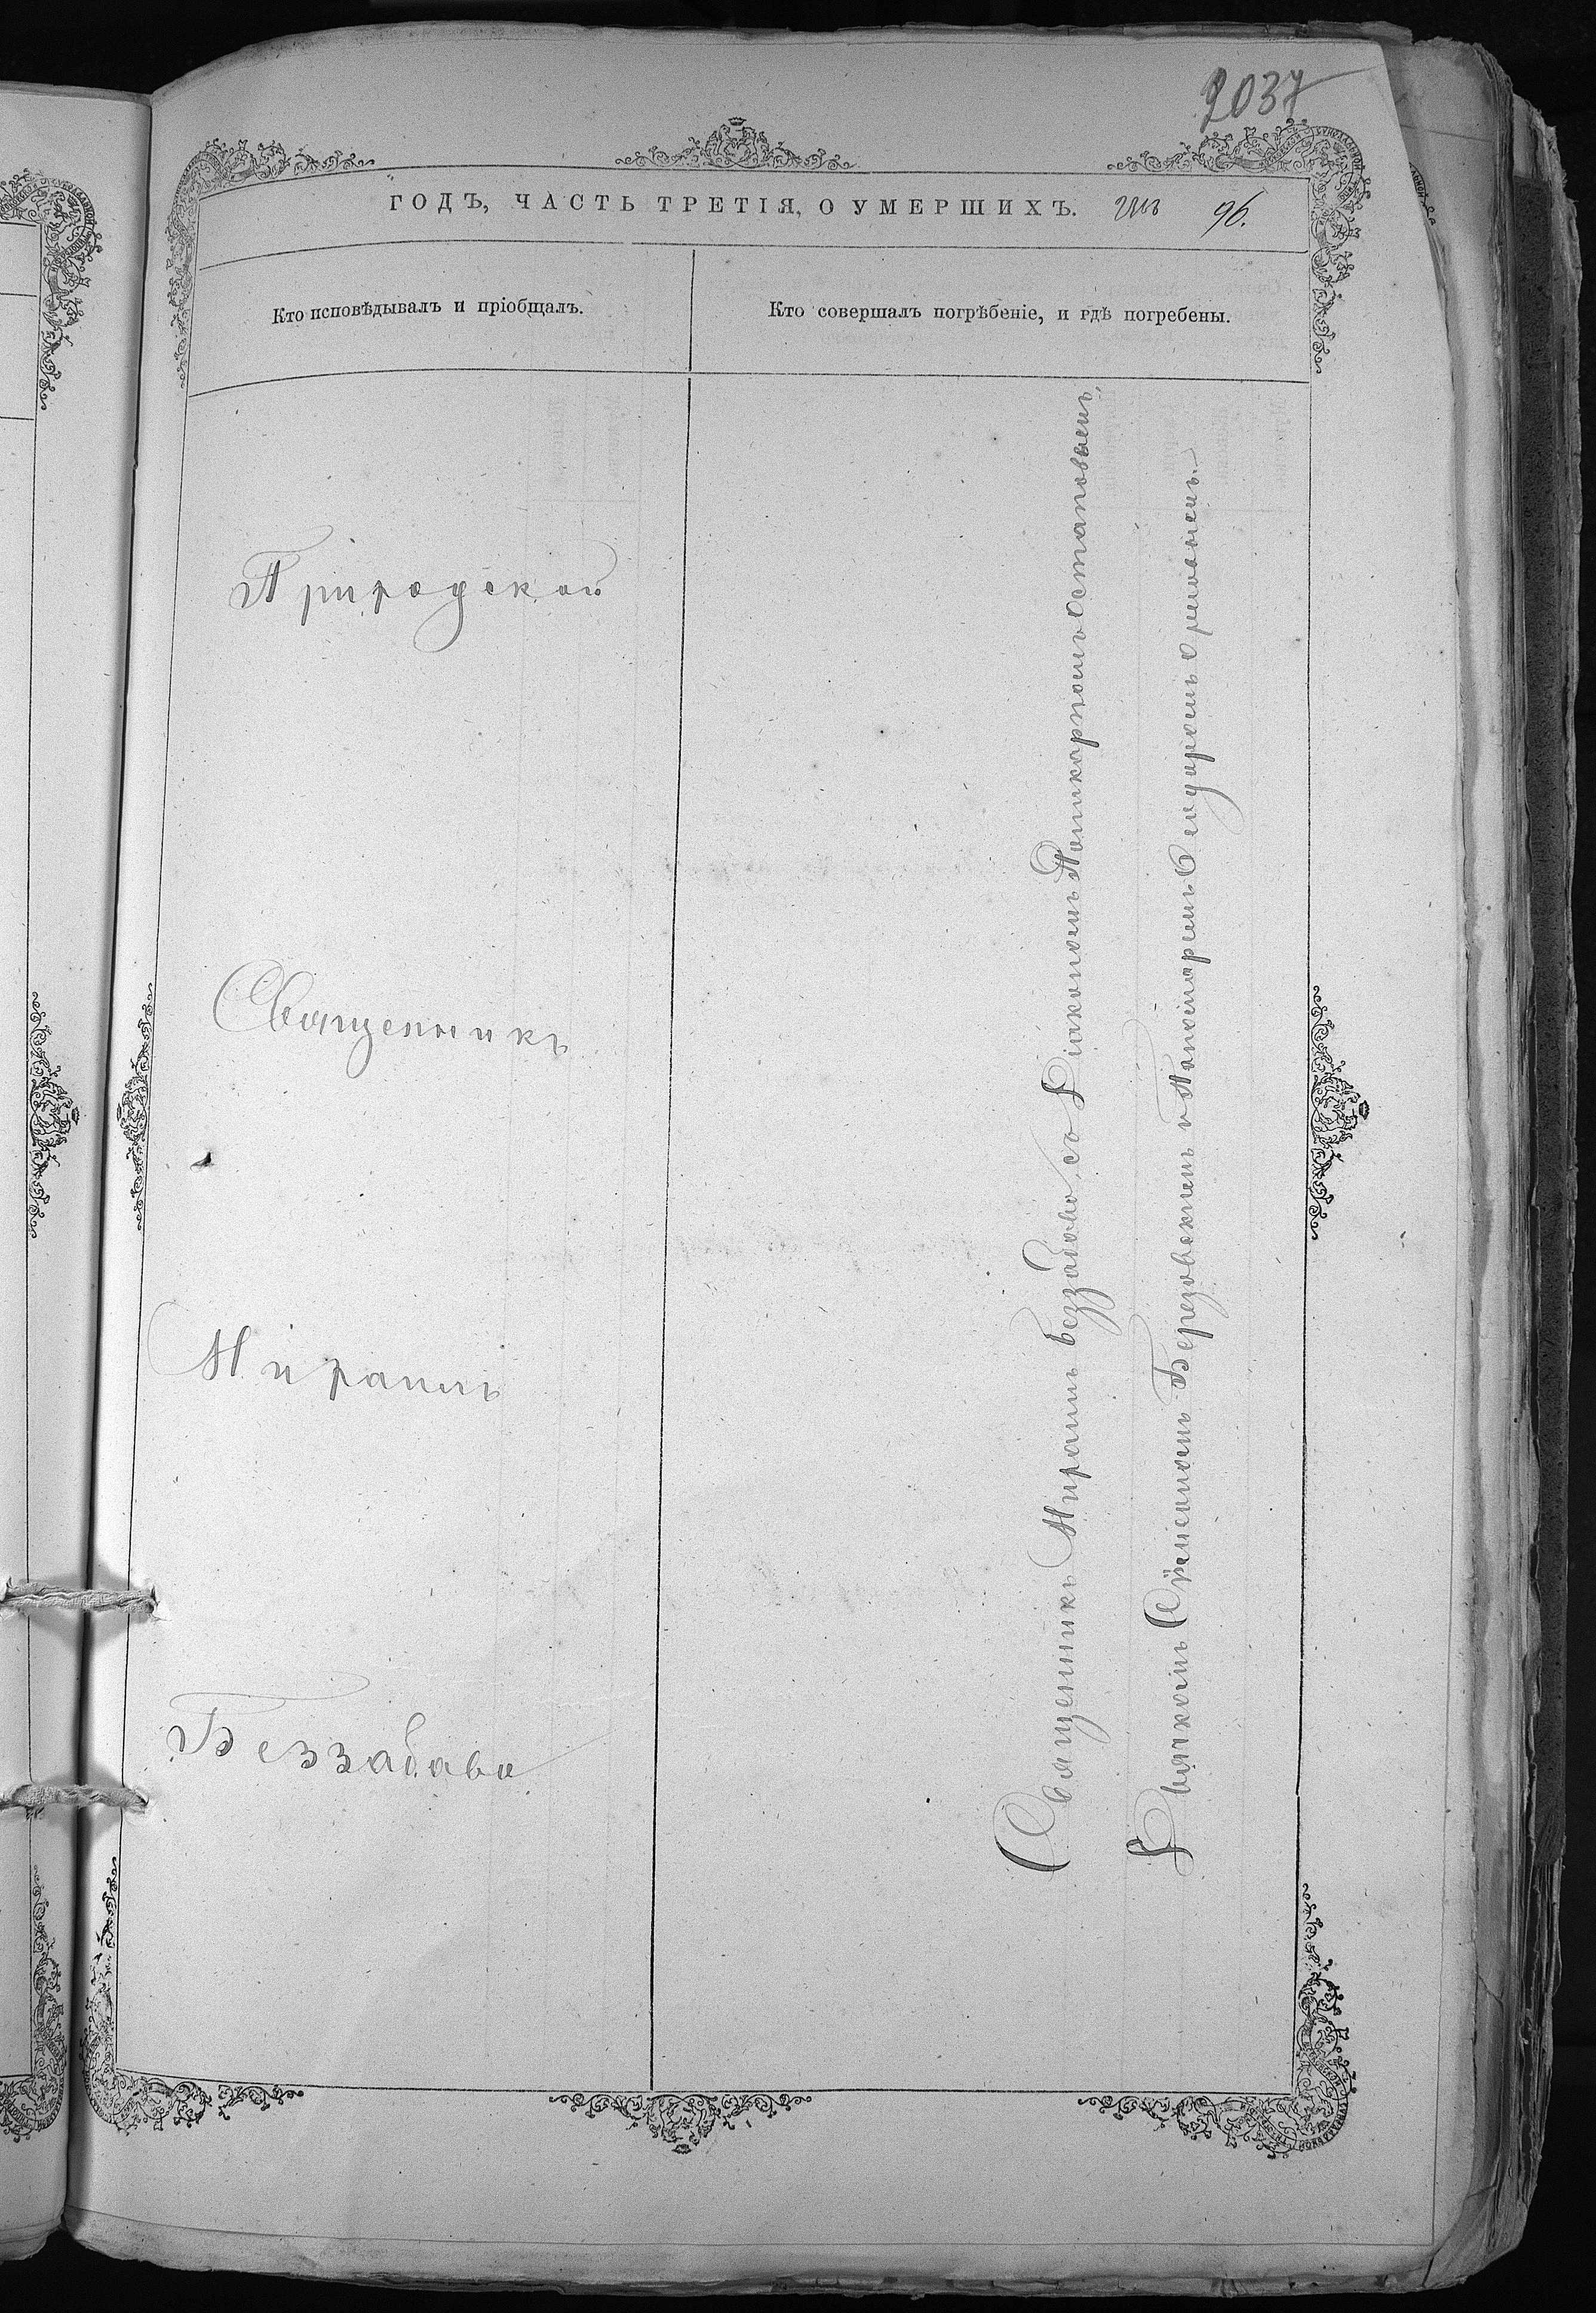 2037
ГОДЪ, ЧАСТЬ ТРЕТІЯ, О УМЕРШИХЪ. 96.
Кто исповѣдывалъ и пріобщалъ.
Кто совершалъ погрѣбеніе, и гдѣ погребены.
Природской
Священникъ
Миронъ
Беззабава
Священникъ Миронъ Беззабава, съ Діакономъ Поликарпомъ Остаповымъ,
Дьячкомъ Симеономъ Березовскимъ и Пономаремъ Ѳеодоромъ